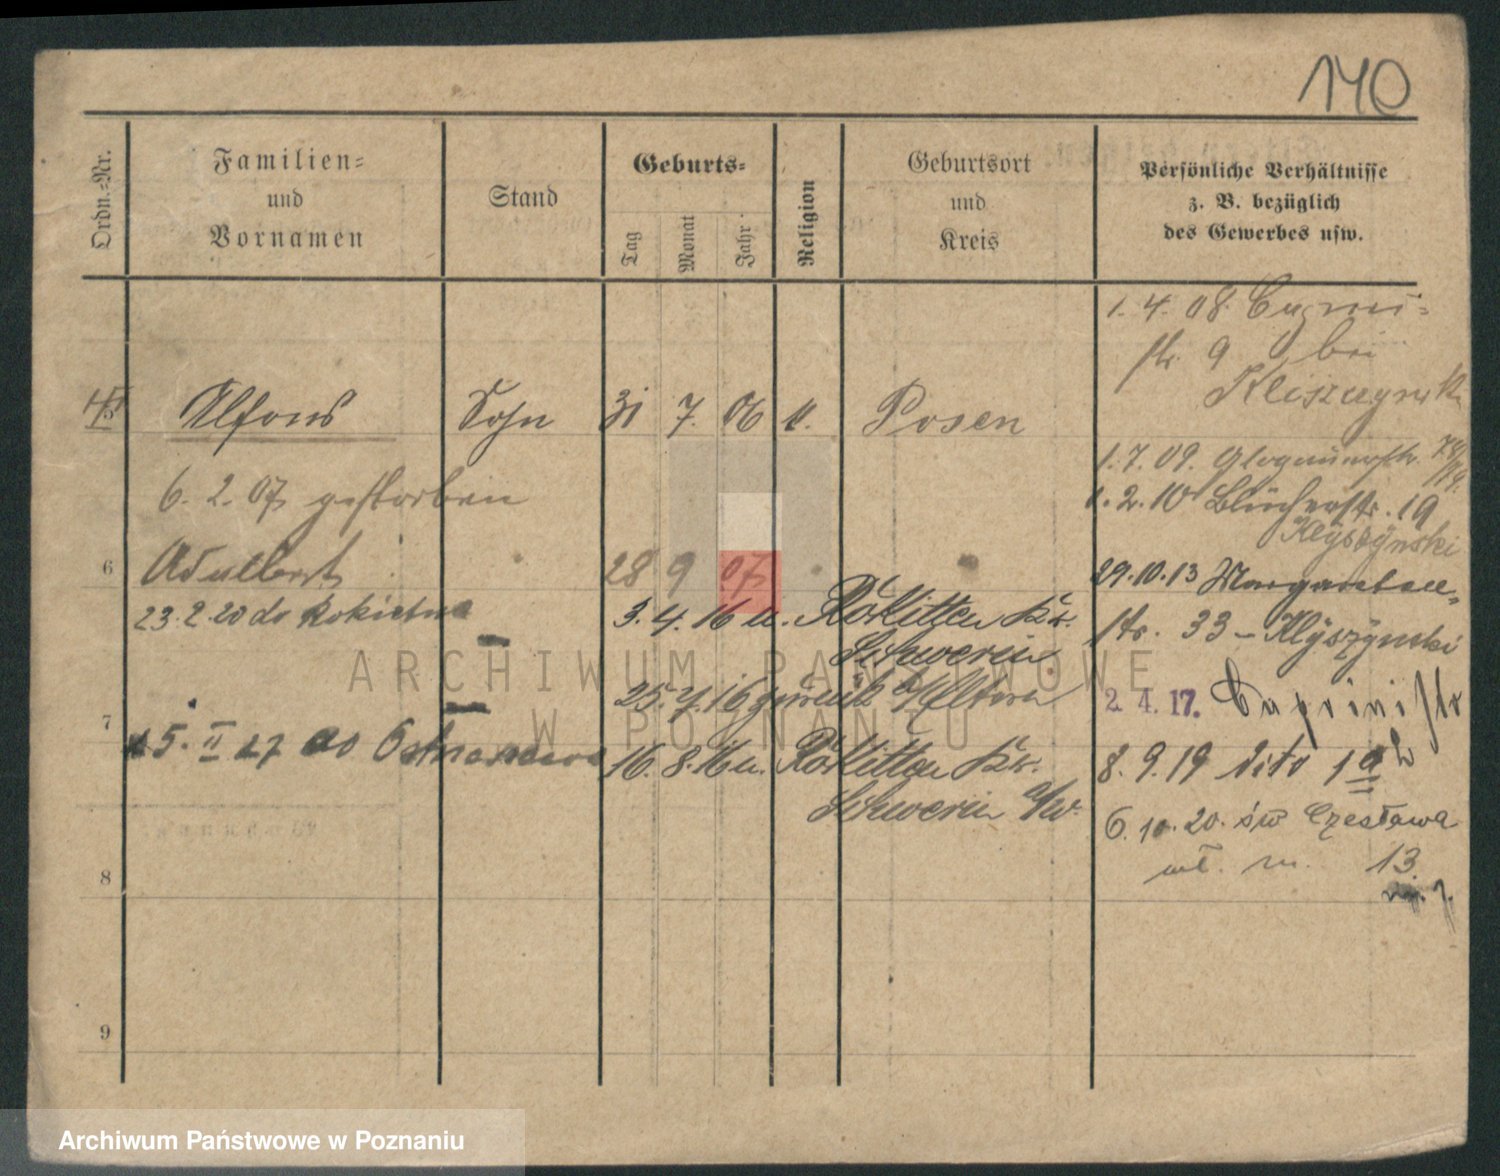 140
Ordn.-Nr.
Familien-
und
Vornamen
Stand
Geburts-
Tag
Monat
Jahr
Religion
Geburtsort
und
Kreis
Persönliche Verhältnisse
z. B. bezüglich
des Gewerbes usw.
1. 4. 08.
str. 9 bei
5 Alfons Sohn 31 7. 06 Posen
6. 2. 07 gestorben
1. 7. 09. Glogauerstr.
1. 2. 10 Blücherstr. 19
Klyszynski
6 Adalbert 28 9 07
29.10.13 Margareten-
str. 33 - Klyszynski
23.2.20 do Rokietna
3. 4. 16 u. Rokitten Kr.
Schwerin
2. 4. 17. Caprivistr
25. 7. 16 zurück
7
15. II 27 do
16. 8. 16 u. Rokitten Kr.
Schwerin a/W.
8. 9. 19 dito
6. 10. 20. św Czesława
m. 13.
8
9
ARCHIWUM PAŃSTWOWE
W POZNANIU
Archiwum Państwowe w Poznaniu